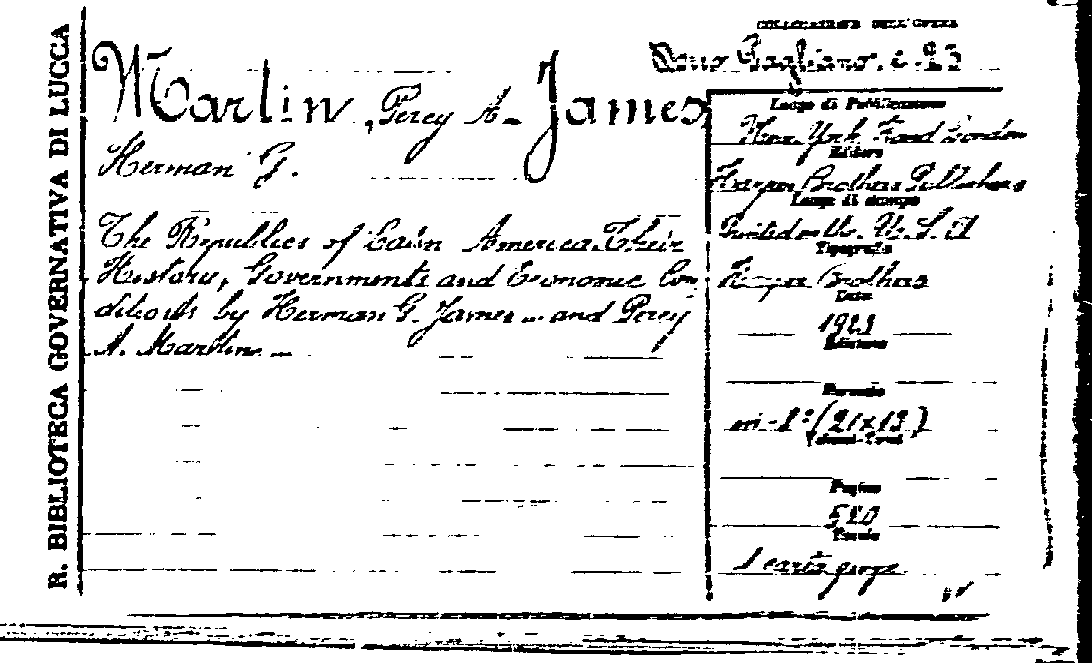 R. BIBLIOTECA GOVERNATIVA DI LUCCA
COLLOCAZIONE DELL'OPERA
Dono Gagliano. c. 23
Martin, Percy A- James,
Herman G.
The Republics of Latin America Their
History, Governments and Economic Con-
ditions by Herman G. James - and Percy
A. Martin -
Luogo di Pubblicazione
New York, and London
Editore
Harper Brothers Publishers
Luogo di stampa
Printed in the U. S. A
Tipografia
Harper Brothers
Data
1923
Edizione
Formato
in-8° (21x13)
Volumi-Tomi
Pagine
520
Tavole
1 carta geogr.